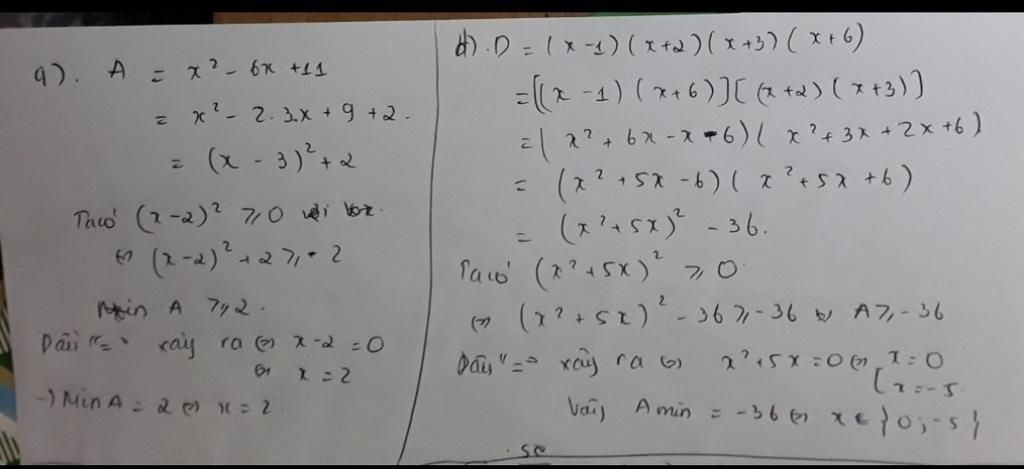 a). A = x² - 6x + 11
= x² - 2.3.x + 9 + 2.
= (x - 3)² + 2
Ta có (x-2)² ⩾ 0 với
⇔ (x-2)² + 2 ⩾ 2
Min A ⩾ 2.
Dấu "=" xảy ra ⇔ x-2 = 0
⇔ x = 2
→ Min A = 2 ⇔ x = 2.
d). D = (x-1)(x+2)(x+3)(x+6)
= [(x-1)(x+6)][(x+2)(x+3)]
= (x² + 6x - x - 6)(x² + 3x + 2x + 6)
= (x² + 5x - 6)(x² + 5x + 6)
= (x² + 5x)² - 36.
Ta có (x² + 5x)² ⩾ 0
⇔ (x² + 5x)² - 36 ⩾ -36 ⇔ A ⩾ -36
Dấu "=" xảy ra ⇔ x² + 5x = 0 ⇔ [ x = 0
x = -5.
Vậy A min = -36 ⇔ x ∈ {0; -5}